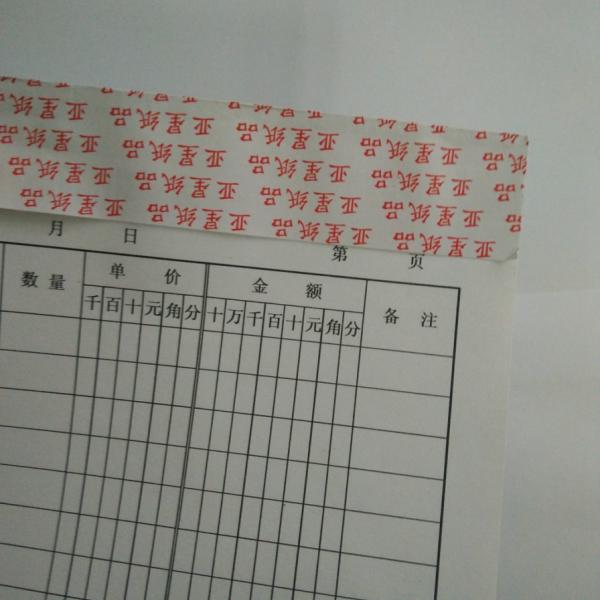 亚星纸品 亚星纸品 亚星纸品 亚星纸品
亚星纸品 亚星纸品 亚星纸品 亚星纸品
亚星纸品 亚星纸品 亚星纸品 亚星纸品
亚星纸品 亚星纸品 亚星纸品 亚星纸品
月 日 第 页
数量 单价 金额 备注
千百十元角分 十万千百十元角分